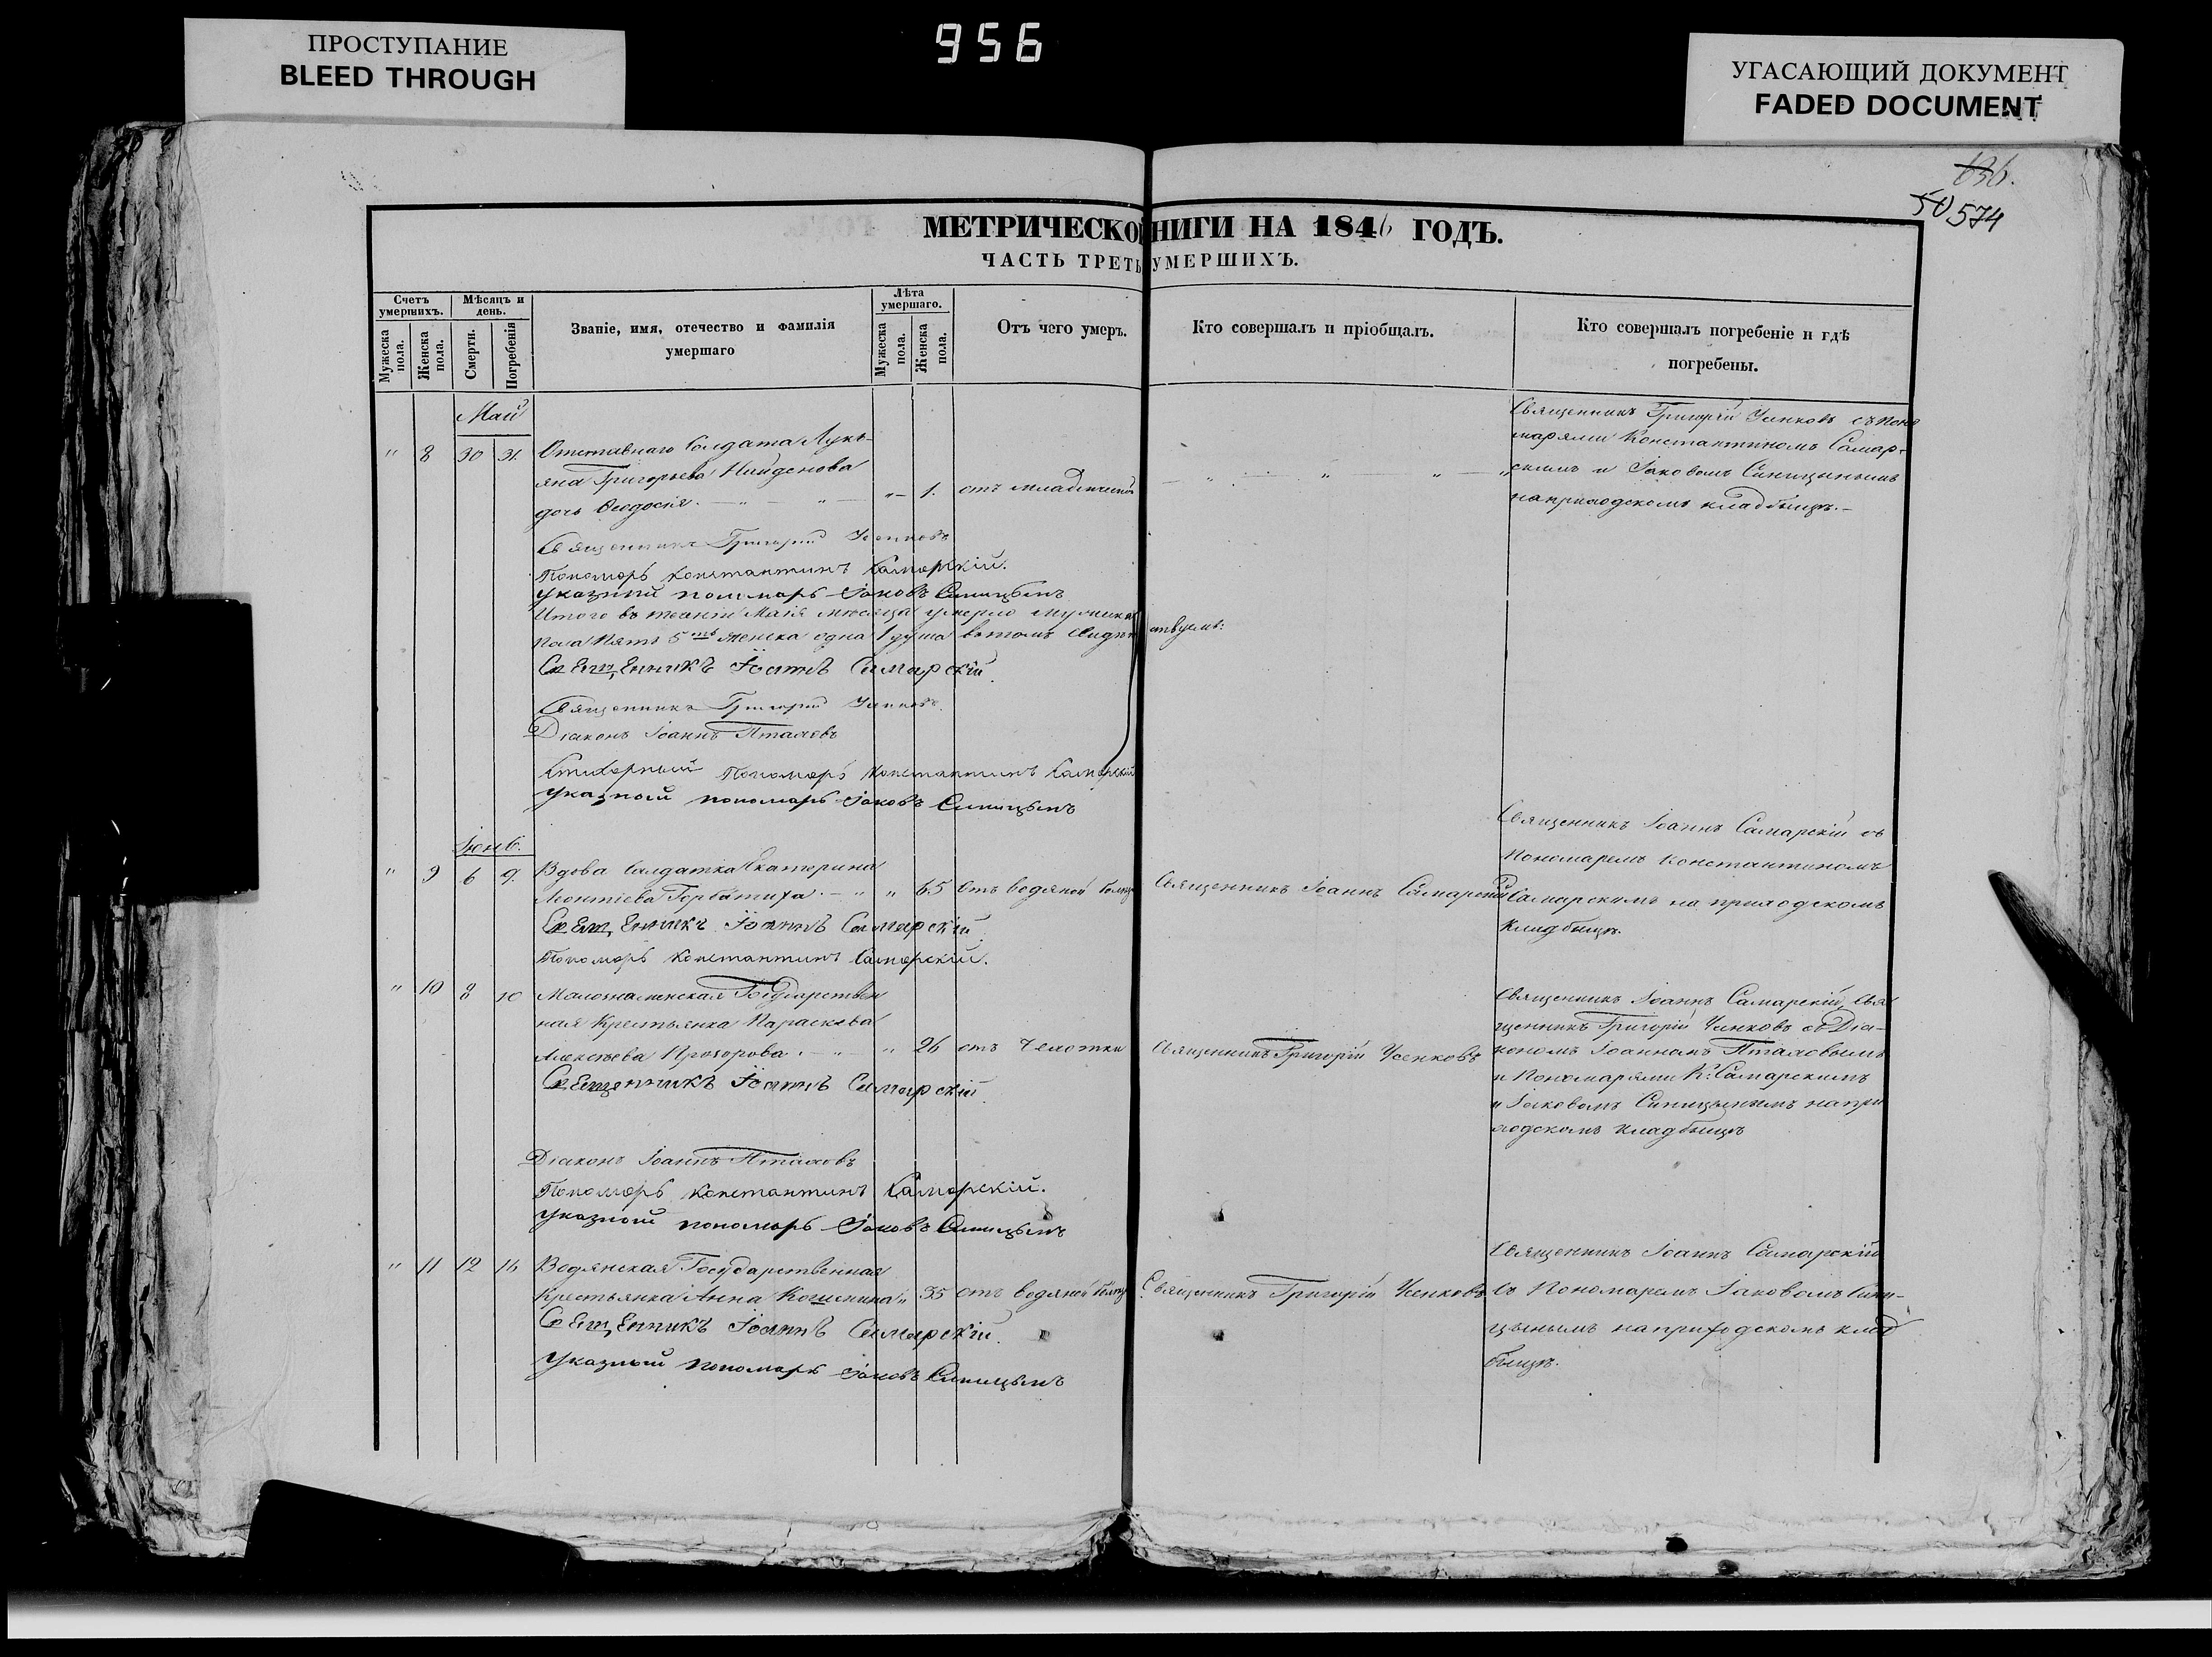 ПРОСТУПАНИЕ
BLEED THROUGH
956
УГАСАЮЩИЙ ДОКУМЕНТ
FADED DOCUMENT
636.
50 574
МЕТРИЧЕСКО НИГИ НА 1846 ГОДЪ.
ЧАСТЬ ТРЕТЬ УМЕРШИХЪ.
Счетъ умершихъ.
Мѣсяцъ и день.
Званіе, имя, отечество и фамилія умершаго
Лѣта умершаго.
Отъ чего умеръ.
Кто совершалъ и пріобщалъ.
Кто совершалъ погребеніе и гдѣ погребены.
Мужеска пола.
Женска пола.
Смерти.
Погребенія
Мужеска пола.
Женска пола.
Май
" 8 30 31.
Отставнаго Солдата Лукь-
яна Григорьева Найденова
дочь Ѳеодосія. — " — " — " — 1. отъ младенческой
Священникъ Григорій Усенковъ съ Поно
марями Константиномъ Самар-
скимъ и Іаковомъ Синицынымъ
на приходскомъ кладбищѣ.—
Священникъ Григорій Усенковъ
Пономарь Константинъ Самарскій.
Указный пономарь Іаковъ Синицынъ
Итого въ теченіи Маія мѣсяца умерло мужеска
пола Пять 5ть женска одна 1 душа въ томъ свидѣтельствуемъ:
Священникъ Іоаннъ Самарскій.
Священникъ Григорій Усенковъ.
Діаконъ Іоаннъ Птаховъ
Стихарный Пономарь Константинъ Самарскій
Указной пономарь Іаковъ Синицынъ
Іюнь.
" 9 6 9.
Вдова Солдатка Екатерина
Леонтіева Горбатиха. — " " 65 Отъ водяной болѣз
Священникъ Іоаннъ Самарскій
Священникъ Іоаннъ Самарскій съ
Пономаремъ Константиномъ
Самарскимъ на приходскомъ
кладбищѣ.
Священникъ Іоаннъ Самарскій.
Пономарь Константинъ Самарскій.
" 10 8 10
Малознаменская Государствен
ная Крестьянка Параскева
Алексѣева Прозорова. — " — " 26 отъ Чахотки
Священникъ Григорій Усенковъ
Священникъ Іоаннъ Самарскій, Свя
щенникъ Григорій Усенковъ съ Діа-
кономъ Іоанномъ Птаховымъ
и Пономарями К: Самарскимъ
и Іаковомъ Синицынымъ на при
ходскомъ кладбищѣ
Священникъ Іоаннъ Самарскій.
Діаконъ Іоаннъ Птаховъ
Пономарь Константинъ Самарскій.
Указной пономарь Іаковъ Синицынъ
" 11 12 16
Водянская Государственная
Крестьянка Анна Кошенина " 35 отъ водяной болѣз
Священникъ Григорій Усенковъ
Священникъ Іоаннъ Самарскій
съ Пономаремъ Іаковомъ Сини-
цынымъ на приходскомъ клад
бищѣ.
Священникъ Іоаннъ Самарскій.
Указный пономарь Іаковъ Синицынъ